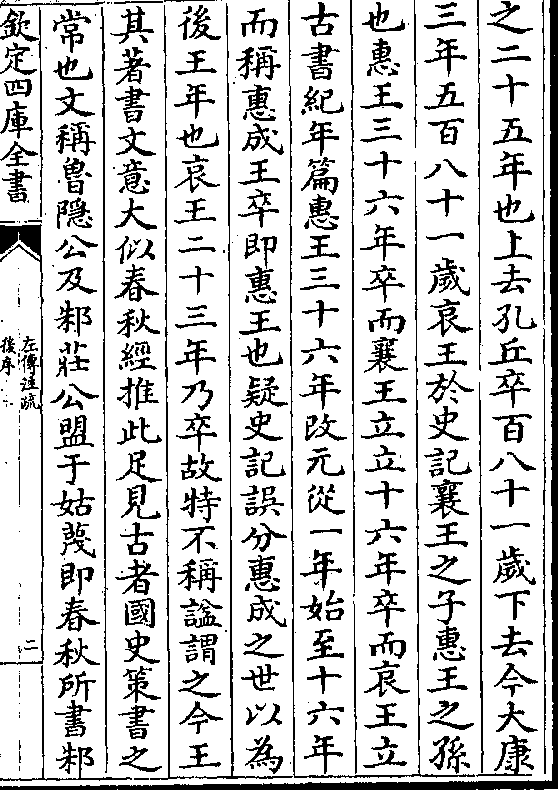 之二十五年也上去孔丘卒百八十一歲下去今大康
三年五百八十一歲哀王於史記襄王之子惠王之孫
也惠王三十六年卒而襄王立立十六年卒而哀王立
古書紀年篇惠王三十六年改元從一年始至十六年
而稱惠成王卒即惠王也疑史記誤分惠成之世以為
後王年也哀王二十三年乃卒故特不稱謚謂之今王
其著書文意大似春秋經推此足見古者國史策書之
常也文稱魯隱公及邾莊公盟于姑蔑即春秋所書邾
欽定四庫全書
左傳注疏
後序
二